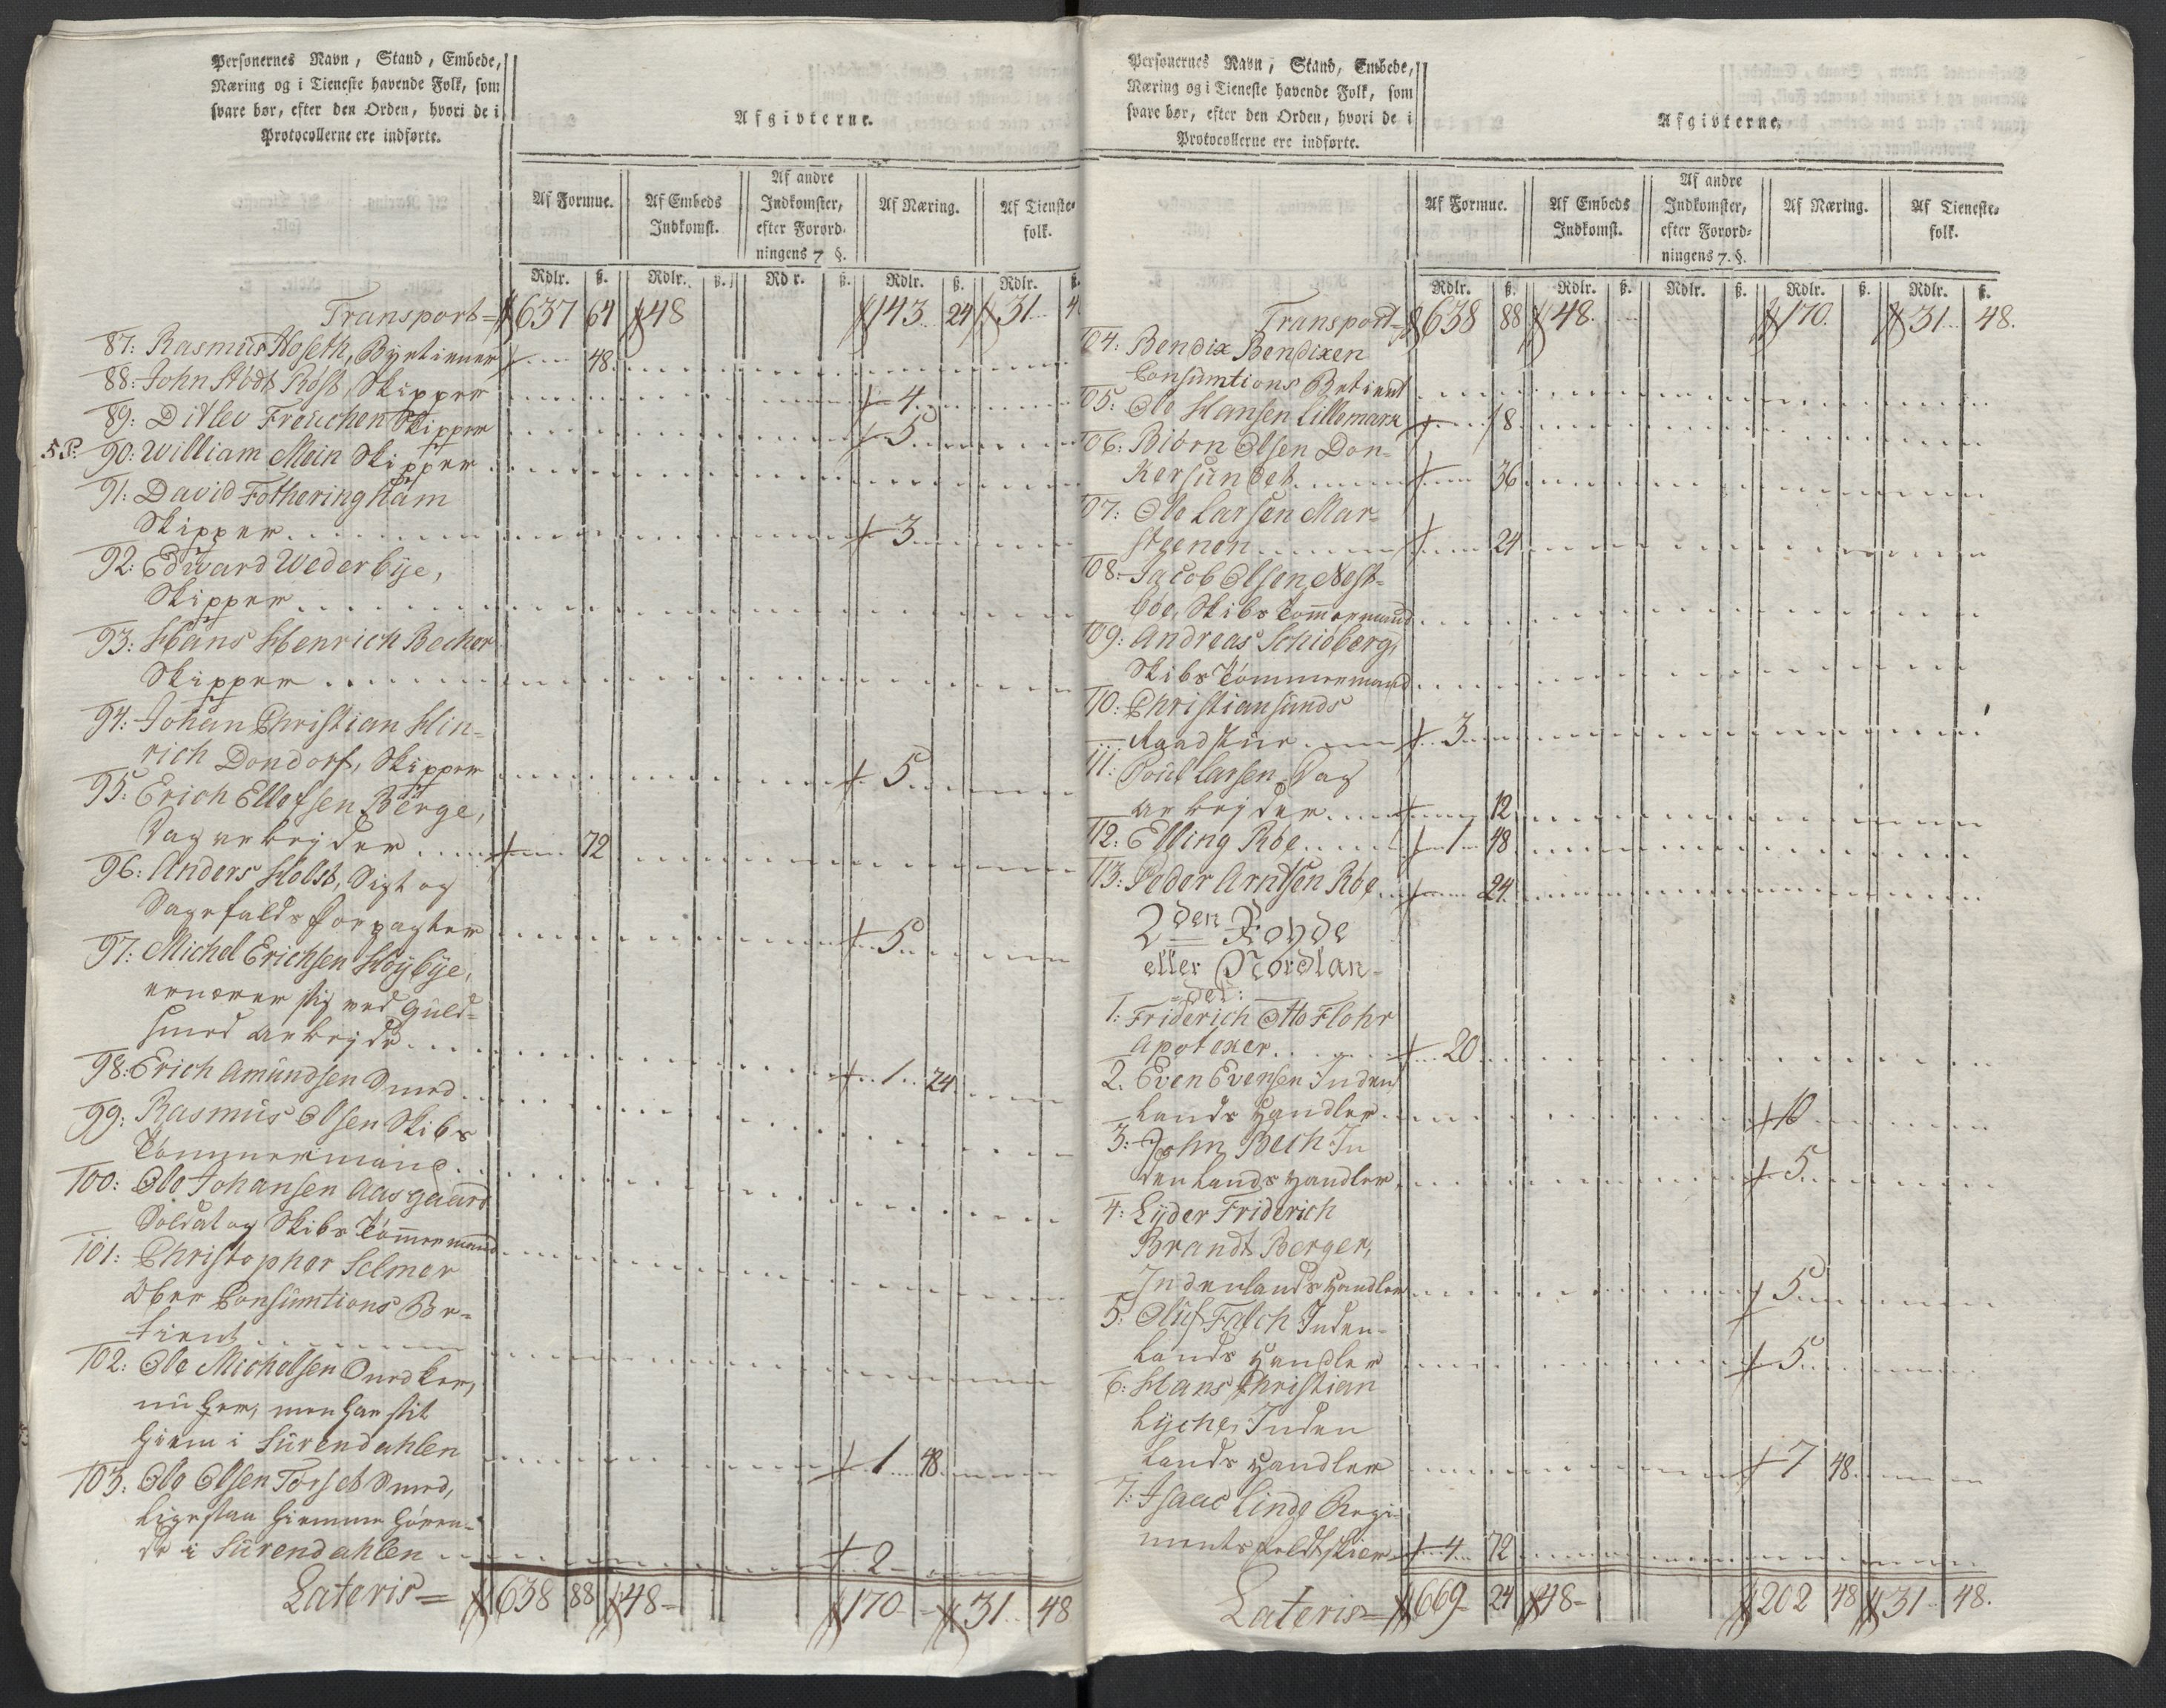 Personernes Navn, Stand, Embede,
Næring og i Tieneste havende Folk, som
svare bør, efter den Orden, hvori de i
Protocollerne ere indførte.
Afgivterne.
Af Formue. Af Embeds Indkomst. Af andre Indkomster, efter Forord- ningens 7 §. Af Næring. Af Tieneste- folk.
Rdlr. ß. Rdlr. ß. Rdr. ß. Rdlr. ß. Rdlr. ß.
Transport= 637 64 48 143 24 31 4
87: Rasmus Hoseth, Byetiener 48.
88: John Stodt Röst, Skipper 4.
89: Ditlev Freuchen Skipper 5.
5 P. 90: William Mein Skipper
91: David Fotheringham
Skipper 3
92: Edward Wederbÿe,
Skipper
93: Hans Henrich Becher
Skipper
94: Johan Christian Hin-
rich Dondorf, Skipper 5
95: Erich Ellefsen Berge,
Dagarbeyder 72
96: Anders Holst, Sigt og
Sagefalds Forpagter 5
97: Michel Erichsen Høybÿe,
ernærer sig ved Guld-
smed arbeyde 1 24
98: Erich Amundsen Smed
99: Rasmus Olsen Skibs
Tømmermand
100: Ole Johansen Aasgaard
Soldat og Skibs Tømmermand
101: Christopher Selmer
Ober Consumtions Be-
tient
102: Ole Michelsen Snedker,
nu her, men har sit
hiem i Surendahlen 1 48
103: Ole Olsen Torset Smed,
ligesaa hiemme høren-
de i Surendahlen 2
Lateris= 638 88 48 170 31 48
Personernes Navn, Stand, Embede,
Næring og i Tieneste havende Folk, som
svare bør, efter den Orden, hvori de i
Protocollerne ere indførte.
Afgivterne.
Af Formue. Af Embeds Indkomst. Af andre Indkomster, efter Forord- ningens 7. §. Af Næring. Af Tieneste- folk.
Rdlr. ß. Rdlr. ß. Rdlr. ß. Rdlr. ß. Rdlr. ß.
Transport= 638 88 48. 170. 31 48.
104: Bendix Bendixen
Consumtions Betient
105: Ole Hansen Lillemark 18
106: Biörn Olsen Don-
kersundet 36
107: Ole Larsen Mar-
steenen 24
108: Jacob Olsen Nest-
böe, Skibs Tømmermand
109: Andreas Schiöberg,
Skibs Tømmermand
110: Christiansunds
Raadstue 3
111: Poul Larsen Dag
arbeyder 12
112: Elling Röe 1 48
113: Peder Arntsen Röe 24.
2den Royde
eller Nordlan-
det:
1: Friderich Otto Flohr
Apoteker 20
2. Even Evensen Inden
lands Handler 10
3: John Bech In
denlands Handler 5.
4: Lyder Friderich
Brandt Berger,
Indenlands Handler 5
5: Oluf Falch Inden-
lands Handler 5
6: Hans Christian
Lyche, Inden
lands Handler 7 48
7: Isaac Linde Regi-
ments feldtskier 4 72
Lateris= 669 24 48 202 48 31 48.